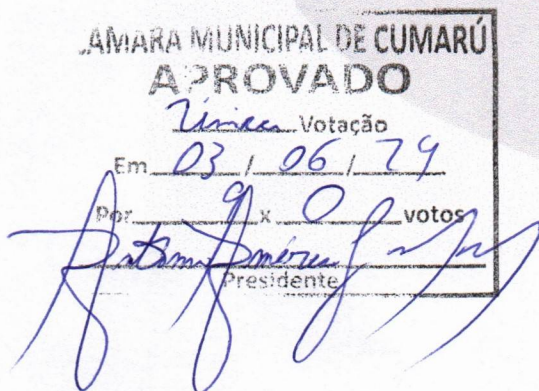 CÂMARA MUNICIPAL DE CUMARÚ
APROVADO
Única Votação
Em 03 / 06 / 24
Por 9 x 0 votos
Presidente